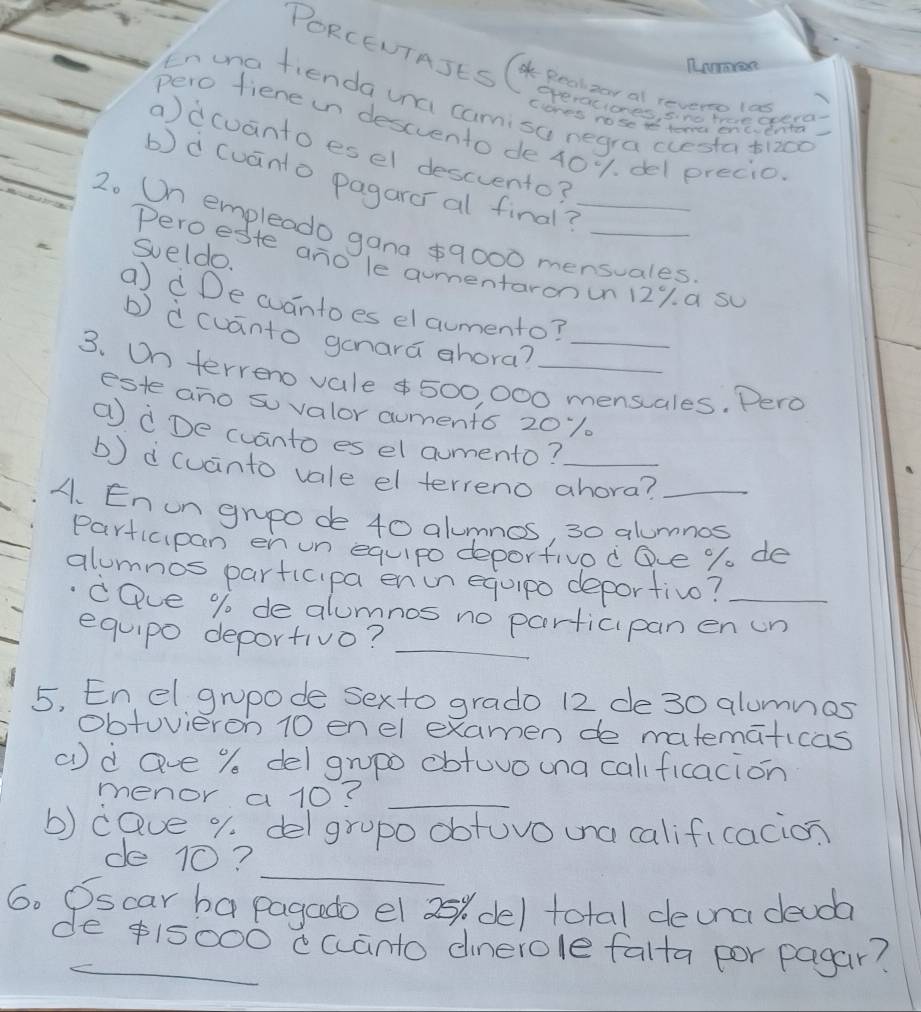 PORCENTAJES (* Realizar al reverso las
operaciones, sino trae opera-
ciones no se toma en cuenta
Lunes
En una tienda una camisa negra cuesta $1200
pero tiene un descuento de 40% del precio.
a) ¿cuánto es el descuento? ____
b) ¿cuánto pagará al final? ____
2. Un empleado gana $9000 mensuales.
Pero este año le aumentaron un 12% a su
sueldo.
a) ¿De cuánto es el aumento? ____
b) ¿cuánto ganará ahora? ____
3. Un terreno vale $500,000 mensuales. Pero
este año su valor aumentó 20%
a) ¿De cuánto es el aumento? ____
b) ¿cuánto vale el terreno ahora? ____
4. En un grupo de 40 alumnos, 30 alumnos
participan en un equipo deportivo ¿Que % de
alumnos participa en un equipo deportivo? ____
·¿Que % de alumnos no participan en un
equipo deportivo? ____
5. En el grupo de sexto grado 12 de 30 alumnos
Obtuvieron 10 en el examen de matemáticas
a) ¿Que % del grupo obtuvo una calificación
menor a 10? ____
b) ¿Que % del grupo obtuvo una calificación
de 10? ____
6. Oscar ha pagado el 25% del total de una deuda
de $15000 ¿cuánto dinero le falta por pagar?
____